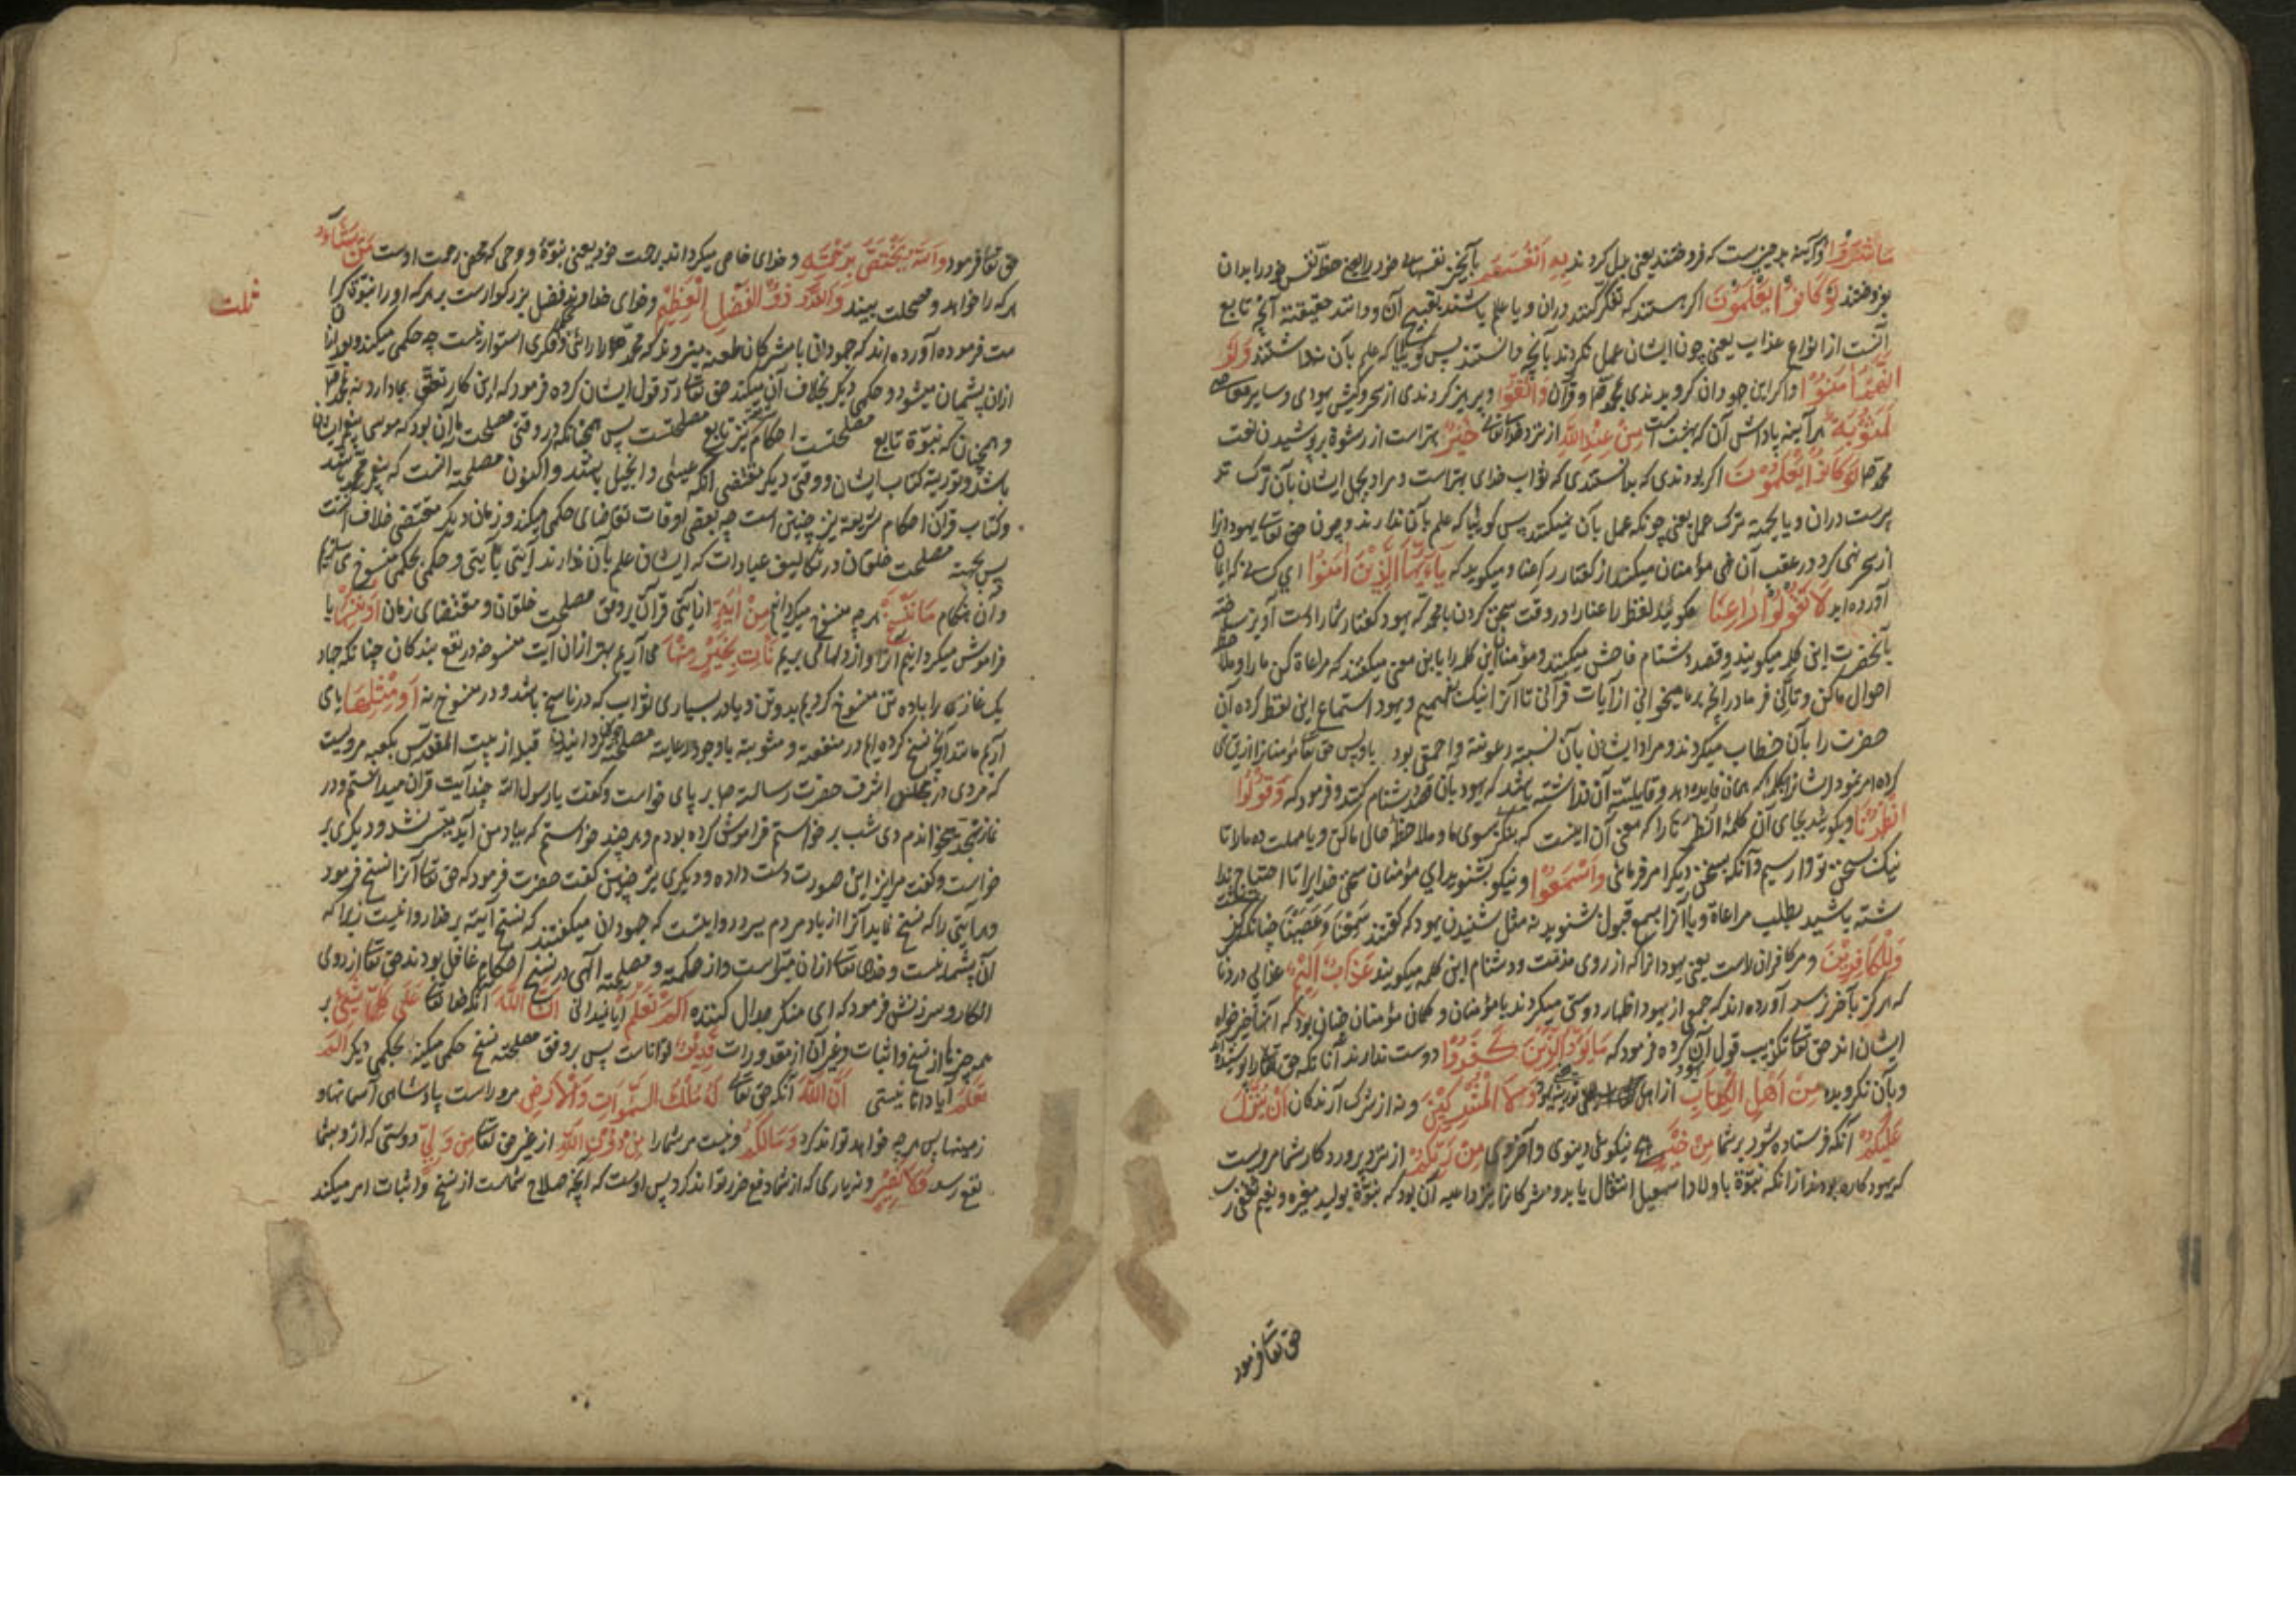 ما شَرَوْا و هر آینه بد چیزیست که فروختند یعنی بدل کردند بِهِ اَنْفُسَهُمْ بآنچیز نفسهای خود را یعنی حظ نفس خود را بدان
بفروختند لَوْ كَانُوا يَعْلَمُونَ اگر هستند که تفکر کنند دران و یا علم باشند بقبیح آن و دانند حقیقته آنچه تابع
آنست از انواع عذاب یعنی چون ایشان عمل نکردند بآنچه دانستند پس گوییا که علم بآن نداشتند وَلَوْ
اَنَّهُمْ اٰمَنُوا و اگر این جهودان گرویدندی بمحمد و قرآن وَاتَّقَوْا و پرهیز کردندی از سحر و کیش یهودی و سایر معاصی
لَمَثُوبَةٌ هر آینه پاداش آن که بهشت است مِنْ عِنْدِ اللّٰهِ از نزد خدای تعالی خَيْرٌ بهتر است از رشوة بر پوشیدن نعت
محمد لَوْ كَانُوا يَعْلَمُونَ اگر بودندی که بدانستندی که ثواب خدای بهتر است و مراد بجهل ایشان بآن ترک تد
برست دران و یا بجهة ترک عمل یعنی چونکه عمل بآن نمیکنند پس گوییا که علم بآن ندارند و چون حق تعالی یهود را
از سحر نهی کرد در عقب آن نهی مؤمنان میکند از گفتار راعنا و میگوید که يَا اَيُّهَا الَّذِينَ اٰمَنُوا ای کسانی که ایمان
آورده اید لَا تَقُولُوا رَاعِنَا مگویید لفظ راعنا را در وقت سخن کردن با محمد که یهود گفتار شما را دست آویز ساخته
بآنحضرت این کلمه میگویند و قصد دشنام فاحش میکنند و مؤمنان این کلمه را باین معنی میگفتند که مراعاة کن ما را و ملاحظه
احوال ما کن و تأنی فرما در آنچه بر ما میخوانی از آیات قرآنی تا آنرا نیک بفهمیم و یهود استماع این لفظ کرده آن
حضرت را بآن خطاب میکردند و مراد ایشان بآن نسبة رعونة و احمقی بود پس حق تعالی مؤمنانرا ازین نهی
کرده امر نمود ایشانرا بکلمه که همان فایده دهد و قابلیته آن نداشته باشد که یهود بآن قصد دشنام کنند و فرمود که وَقُولُوا
انْظُرْنَا و بگویید بجای آن کلمهٔ انظرنا را که معنی آن اینست که بنگر بسوی ما و ملاحظهٔ حال ما کن و یا مهلت ده ما را تا
نیک بسخن تو وارسیم و آنکه بسخن دیگر امر فرمائی وَاسْمَعُوا و نیکو بشنوید ای مؤمنان سخن خدایرا تا احتیاج ندا
شته باشید بطلب مراعاة و یا آنرا بسمع قبول شنوید نه مثل شنیدن یهود که گفتند سَمِعْنَا وَعَصَيْنَا
وَلِلْكَافِرِينَ و مر کافران راست یعنی یهود انرا که از روی مذمت و دشنام این کلمه میگویند عَذَابٌ اَلِيمٌ عذابی دردناک
که هرگز بآخر نرسد آورده اند که جمعی از یهود اظهار دوستی میکردند با مؤمنان و گمان مؤمنان چنان بود که آنها خیر خواه
ایشان اند حق تعالی تکذیب قول آن کرده فرمود که مَا يَوَدُّ الَّذِينَ كَفَرُوا دوست ندارند آنانکه حق را پوشیدند
و بآن نگرویده مِنْ اَهْلِ الْكِتَابِ از اهل وَلَا الْمُشْرِكِينَ و نه از شرک آرندگان اَنْ يُنَزَّلَ
عَلَيْكُمْ آنکه فرستاده شود بر شما مِنْ خَيْرٍ هیچ نیکوئی دنیوی و آخروی مِنْ رَبِّكُمْ از نزد پروردگار شما مرویست
که یهود کاره بودند از آنکه نبوّة باولاد اسمعیل انتقال یابد و مشرکانرا نیز داعیه آن بود که نبوّة بولید مغیره و نعیم ثقفی رسد
حق تعالی فرمود
حق تعالی فرمود وَاللّٰهُ يَخْتَصُّ بِرَحْمَتِهِ و خدای خاص میگرداند برحمت خود یعنی نبوّة و وحی که محض رحمت اوست مَنْ يَشَاءُ
هر که را خواهد و مصلحت بیند وَاللّٰهُ ذُو الْفَضْلِ الْعَظِيمِ و خدای خداوند فضل بزرگوار است بر هر که او را نبوّة کرا
ثلث
مت فرموده آورده اند که جهودان با مشرکان طعنه میزدند که محمد را رائی و فکری استوار نیست چه حکمی میکند و بعد
ازان پشیمان میشود و حکمی دیگر بخلاف آن میکند حق تعالی ردّ قول ایشان کرده فرمود که این کار تعلق بما دارد نه بمحمد
و همچنان که نبوّة تابع مصلحتست احکام نیز تابع مصلحتست پس همچنانکه در وقتی مصلحت ما آن بود که موسی پیغمبر ایشان
باشد و توریة کتاب ایشان و وقتی دیگر مقتضی آنکه عیسی و انجیل باشند و اکنون مصلحة آنست که پیغمبر محمد باشد
و کتاب قرآن احکام شریعة نیز چنین است چه بعضی اوقات تقاضای حکمی میکند و زمان دیگر مقتضی خلاف آنست
پس بجهة مصلحت خلقان در تکالیف عبادات که ایشان علم بآن ندارند آیتی بآیتی و حکمی بحکمی منسوخ می سازیم
و آن هنگام مَا نَنْسَخْ هر چه منسوخ میگردانیم مِنْ اٰيَةٍ از آیتی قرآن بر وفق مصلحت خلقان و مقتضای زمان اَوْ نُنْسِهَا یا
فراموش میگردانیم آنرا و از دلها می بریم نَأْتِ بِخَيْرٍ مِنْهَا می آریم بهتر ازان آیت منسوخه در نفع بندگان چنانکه جهاد
یک غازی را با ده تن منسوخ کردیم بدو تن و یا در بسیاری ثواب که در ناسخ باشد و در منسوخ نه اَوْ مِثْلِهَا یا می
آریم مانند آنچه نسخ کرده ایم در منفعة و مثوبته با وجود رعایة مصلحة گردانیدن قبله از بیت المقدس بکعبه مرویست
که مردی در مجلس اشرف حضرت رسالت بر پای خواست و گفت یا رسول الله چند آیت قرآن میدانستم و در
نماز تهجد میخواندم دی شب بر خواستم فراموش کرده بودم و هر چند خواستم که بیاد من آید میسّر نشد و دیگری بر
خواست و گفت مرا نیز این صورت دست داده و دیگری نیز چنین گفت حضرت فرمود که حق تعالی آنرا نسخ فرمود
و هر آیتی را که نسخ نماید آنرا از یاد مردم ببرد روایتست که جهودان میگفتند که نسخ آیته بر خدا روا نیست زیرا که
آن پشیمانیست و خدای تعالی ازان مبراست و از حکمة و مصلحة الهی در نسخ احکام غافل بودند حق تعالی از روی
انکار و سرزنش فرمود که ای منکر جدال کننده اَلَمْ تَعْلَمْ آیا ندانی اَنَّ اللّٰهَ آنکه خدای تعالی عَلٰى كُلِّ شَيْءٍ بر
همه چیزها از نسخ و اثبات و غیر آن از مقدورات قَدِيرٌ تواناست پس بر وفق مصلحة نسخ حکمی میکند بحکمی دیگر اَلَمْ
تَعْلَمْ آیا دانا نیستی اَنَّ اللّٰهَ آنکه حق تعالی لَهُ مُلْكُ السَّمٰوَاتِ وَالْاَرْضِ مر او راست پادشاهی آسمانها و
زمینها پس هر چه خواهد تواند کرد وَمَا لَكُمْ و نیست مر شما را مِنْ دُونِ اللّٰهِ از غیر حق تعالی مِنْ وَلِيٍّ دوستی که ازو بشما
نفع رسد وَلَا نَصِيرٍ و نه یاری که از شما دفع ضرر تواند کرد پس اوست که آنچه صلاح شماست از نسخ و اثبات امر میکند